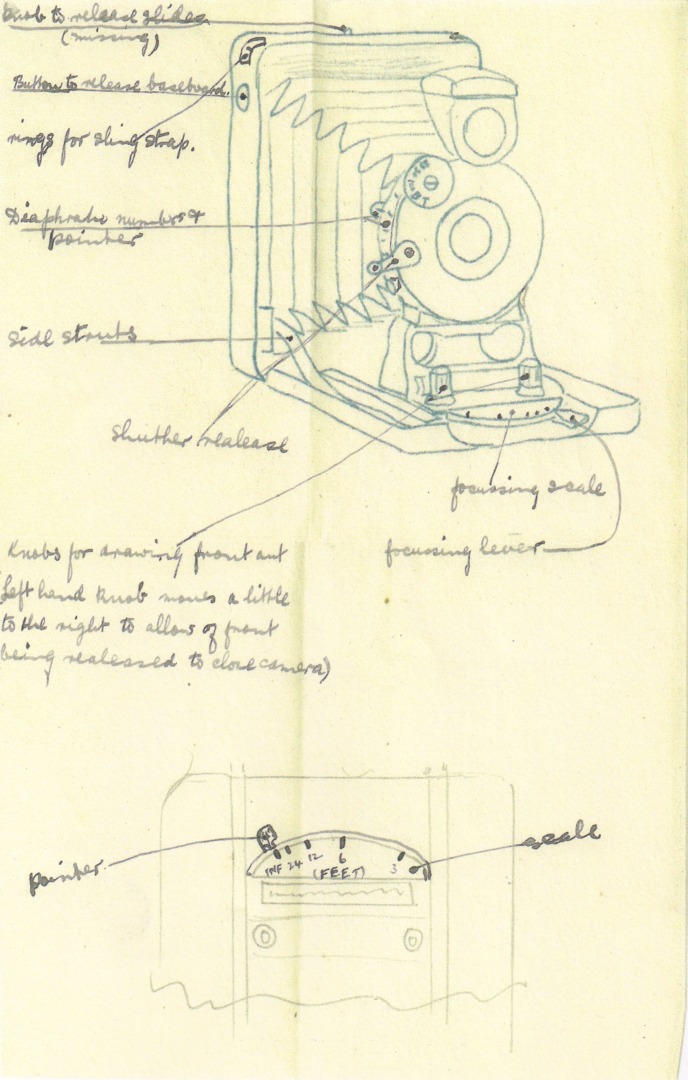 Knob to release slides
(missing)
Button to release baseboard.
rings for sling strap.
Diaphradm numbers &
pointer
Side struts
Shuther realease
focussing scale
focussing lever
Knobs for drawing front out
(Left hand knob moves a little
to the right to allow of front
being realeased to close camera)
pointer
scale
INF 24 12 6 3
(FEET)